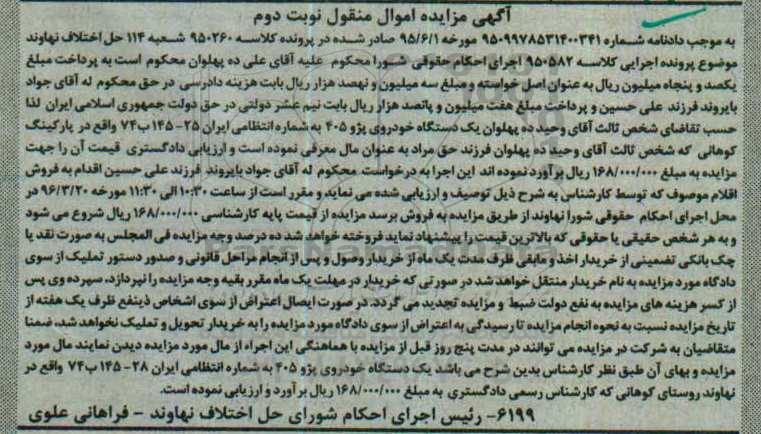 آگهی مزایده اموال منقول نوبت دوم
به موجب دادنامه شماره ۹۵۰۹۹۷۸۵۳۱۴۰۰۳۴۱ مورخه ۹۵/۶/۱ صادر شده در پرونده کلاسه ۹۵۰۲۶۰ شعبه ۱۱۴ حل اختلاف نهاوند
موضوع پرونده اجرایی کلاسه ۹۵۰۵۸۲ اجرای احکام حقوقی شورا محکوم علیه آقای علی ده پهلوان محکوم است به پرداخت مبلغ
یکصد و پنجاه میلیون ریال به عنوان اصل خواسته و مبلغ سه میلیون و نهصد هزار ریال بابت هزینه دادرسی در حق محکوم له آقای جواد
بایروند فرزند علی حسین و پرداخت مبلغ هفت میلیون و پانصد هزار ریال بابت نیم عشر دولتی در حق دولت جمهوری اسلامی ایران لذا
حسب تقاضای شخص ثالث آقای وحید ده پهلوان یک دستگاه خودروی پژو ۴۰۵ به شماره انتظامی ایران ۲۵- ۱۴۵ب۷۴ واقع در پارکینگ
کوهانی که شخص ثالث آقای وحید ده پهلوان فرزند حق مراد به عنوان مال معرفی نموده است و ارزیابی دادگستری قیمت آن را جهت
مزایده به مبلغ ۱۶۸/۰۰۰/۰۰۰ ریال برآورد نموده اند این اجرا به درخواست محکوم له آقای جواد بایروند فرزند علی حسین اقدام به فروش
اقلام موصوف که توسط کارشناس به شرح ذیل توصیف و ارزیابی شده می نماید و مقرر است از ساعت ۱۰:۳۰ الی ۱۱:۳۰ مورخه ۹۶/۳/۲۰ در
محل اجرای احکام حقوقی شورا نهاوند از طریق مزایده به فروش برسد مزایده از قیمت پایه کارشناسی ۱۶۸/۰۰۰/۰۰۰ ریال شروع می شود
و به هر شخص حقیقی یا حقوقی که بالاترین قیمت را پیشنهاد نماید فروخته خواهد شد ده درصد وجه مزایده فی المجلس به صورت نقد یا
چک بانکی تضمینی از خریدار اخذ و مابقی ظرف مدت یک ماه از خریدار وصول و پس از انجام مراحل قانونی و صدور دستور تملیک از سوی
دادگاه مورد مزایده به نام خریدار منتقل خواهد شد در صورتی که خریدار در مهلت یک ماه مقرر بقیه وجه مزایده را نپردازد، سپرده وی پس
از کسر هزینه های مزایده به نفع دولت ضبط و مزایده تجدید می گردد. در صورت ایصال اعتراض از سوی اشخاص ذینفع ظرف یک هفته از
تاریخ مزایده نسبت به نحوه انجام مزایده تا رسیدگی به اعتراض از سوی دادگاه مورد مزایده را به خریدار تحویل و تملیک نخواهد شد، ضمنا
متقاضیان به شرکت در مزایده می توانند در مدت پنج روز قبل از مزایده با هماهنگی این اجراء از مال مورد مزایده دیدن نمایند مال مورد
مزایده و بهای آن طبق نظر کارشناس بدین شرح می باشد یک دستگاه خودروی پژو ۴۰۵ به شماره انتظامی ایران ۲۸- ۱۴۵ب۷۴ واقع در
نهاوند روستای کوهانی که کارشناس رسمی دادگستری به مبلغ ۱۶۸/۰۰۰/۰۰۰ ریال برآورد و ارزیابی نموده است.
۶۱۹۹- رئیس اجرای احکام شورای حل اختلاف نهاوند - فراهانی علوی